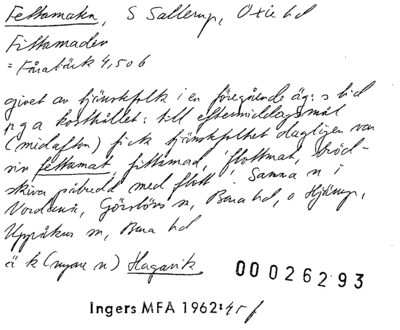 Fettamaden, S Sallerup, Oxie hd
Fittamaden
= Fårabäck 4,50 b
givet av tjänstfolk i en föregående äg:s tid
p g a kosthållet: till eftermiddagsmål
(midafton) fick tjänstfolket dagligen var
sin fettamat, fittamad, 'flottmat, bröd-
skiva påbredd med flott'. Samma n i
Vordensö, Görslövs sn, Bara hd, o Hjärup,
Uppåkra sn, Bara hd
är k (nyare n) Hagavik
00026293
Ingers MFA 1962: 4 s f